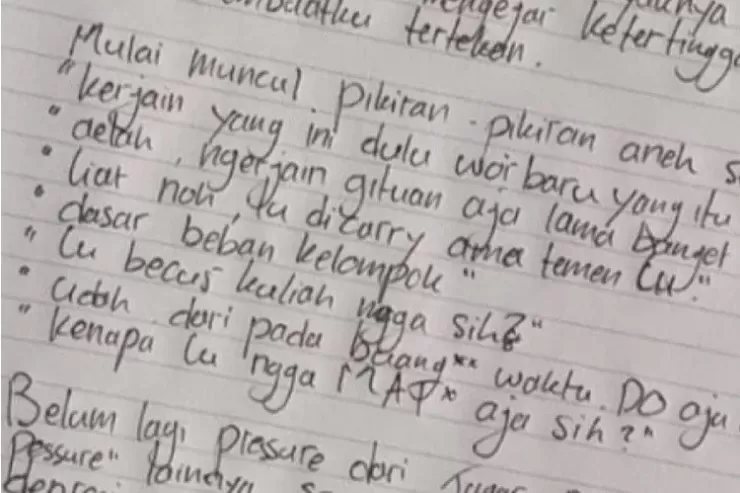 mengejar ketertingga
tertekan.
Mulai muncul pikiran-pikiran aneh s
"kerjain yang ini dulu wor baru yang itu
"aelah, ngerjain gituan aja lama banget
"liat noh, lu dicarry ama temen lu."
"dasar beban kelompok"
"lu becus kuliah ngga sih?"
"udah dari pada buang** waktu. DO aja
"kenapa lu ngga MAT* aja sih?"
Belum lagi pressure dari
Pessure" lainnya